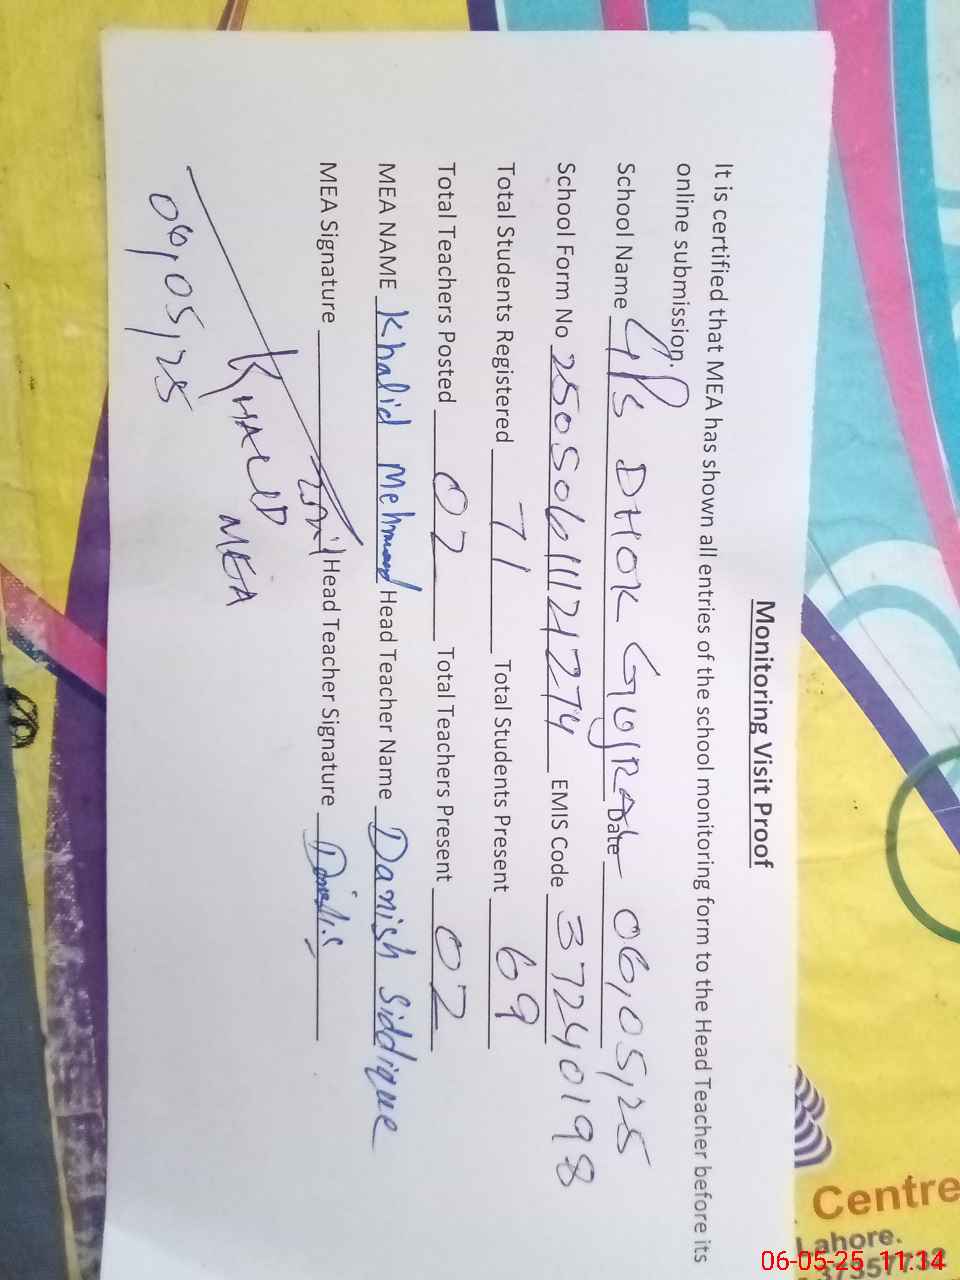 Monitoring Visit Proof
It is certified that MEA has shown all entries of the school monitoring form to the Head Teacher before its
online submission.
School Name GPS DHOK GUJRAL Date 06,05,25
School Form No 25050611121274 EMIS Code 37240198
Total Students Registered 71 Total Students Present 69
Total Teachers Posted 02 Total Teachers Present 02
MEA NAME Khalid Mehmood Head Teacher Name Danish Siddique
MEA Signature Head Teacher Signature Danish
KHALID
MEA
06,05,25
Centre
Lahore.
37357732
06-05-25 11:14